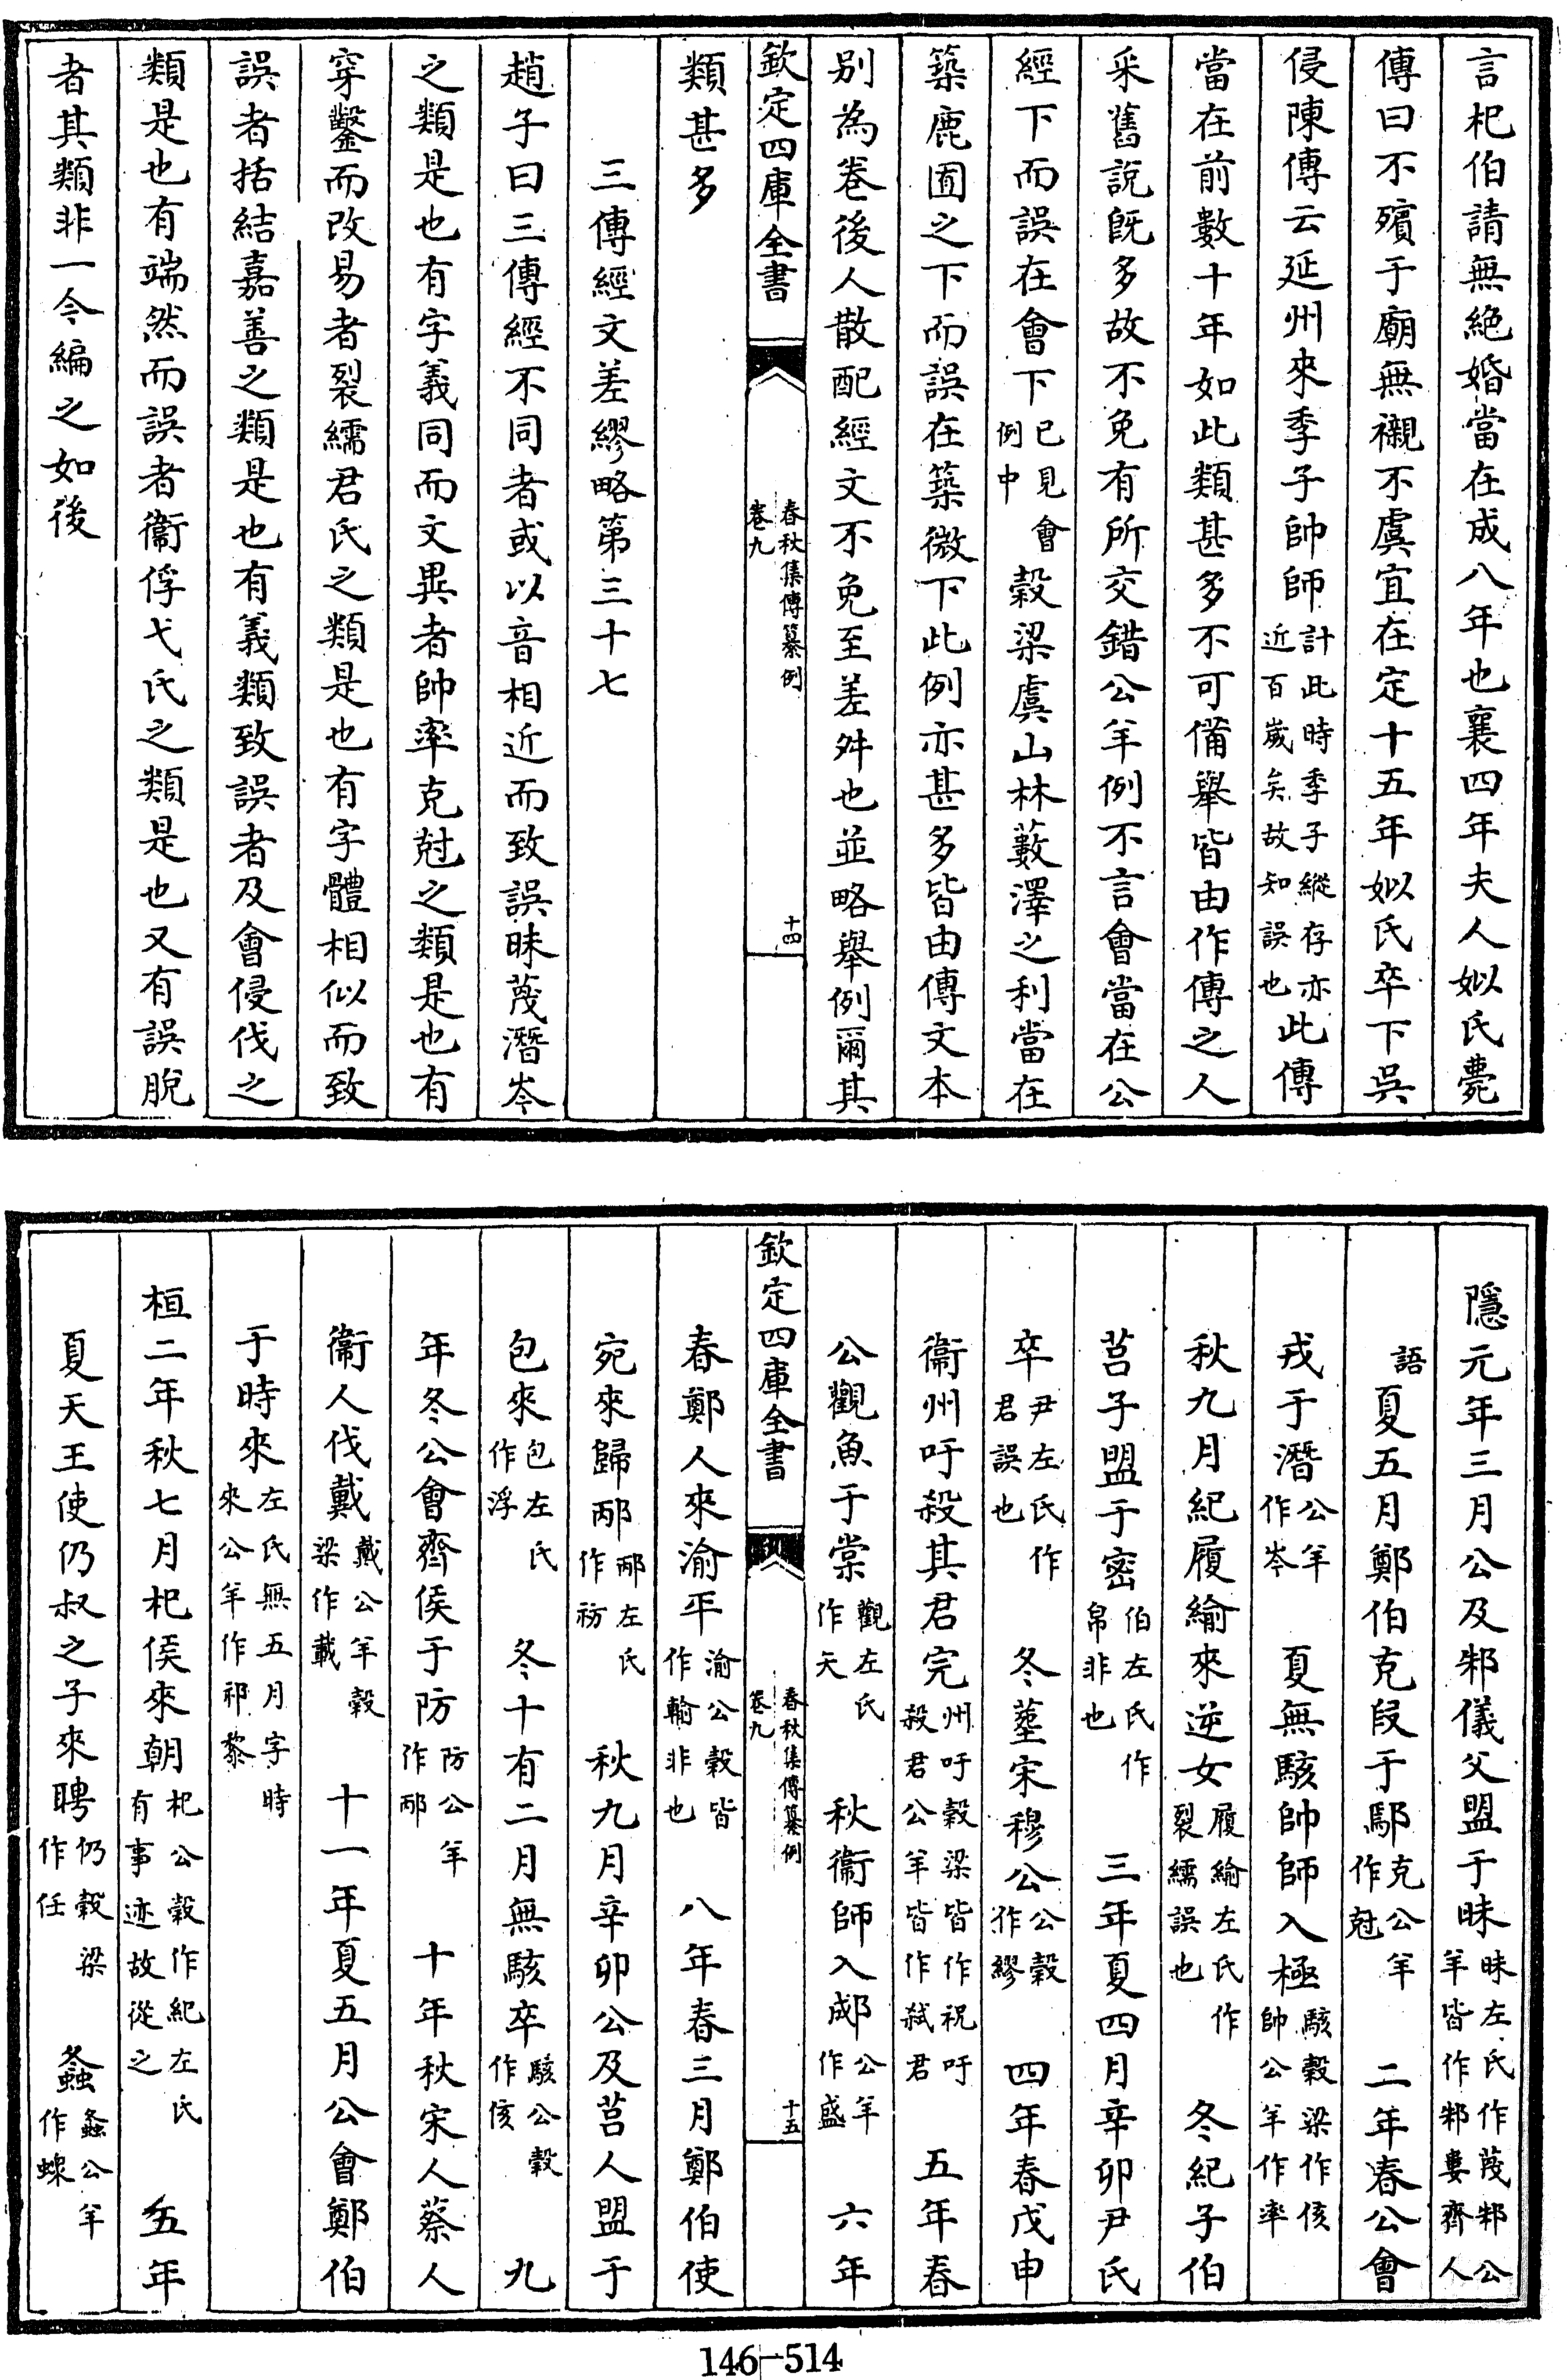 言杞伯請無絶婚當在成八年也襄四年夫人姒氏薨
傳曰不殯于廟無櫬不虞宜在定十五年姒氏卒下吳
侵陳傳云延州來季子帥師計此時季子縱存亦近百嵗矣故知誤也此傳
當在前數十年如此類甚多不可備舉皆由作傳之人
采舊說既多故不免有所交錯公羊例不言會當在公
經下而誤在會下已見會例中穀梁虞山林藪澤之利當在
築鹿囿之下而誤在築微下此例亦甚多皆由傳文本
别為卷後人散配經文不免至差舛也並略舉例爾其
欽定四庫全書 春秋集傳纂例 卷九 十四
類甚多
三傳經文差繆略第三十七
趙子曰三傳經不同者或以音相近而致誤昧蔑潛岑
之類是也有字義同而文異者帥率克尅之類是也有
穿鑿而改易者裂繻君氏之類是也有字體相似而致
誤者括結嘉善之類是也有義類致誤者及會侵伐之
類是也有端然而誤者衞俘弋氏之類是也又有誤脫
者其類非一今編之如後
隱元年三月公及邾儀父盟于昧昧左氏作蔑邾公羊皆作邾婁齊人
語夏五月鄭伯克段于鄢克公羊作尅 二年春公會
戎于潛公羊作岑 夏無駭帥師入極駭穀梁作侅帥公羊作率
秋九月紀履緰來逆女履緰左氏作裂繻誤也 冬紀子伯
莒子盟于密伯左氏作帛非也 三年夏四月辛卯尹氏
卒尹左氏作君誤也 冬葬宋穆公公穀作繆 四年春戊申
衞州吁殺其君完州吁穀梁皆作祝吁殺君公羊皆作弑君 五年春
公觀魚于棠觀左氏作矢 秋衞師入郕公羊作盛 六年
欽定四庫全書 春秋集傳纂例 卷九 十五
春鄭人來渝平渝公穀皆作輸非也 八年春三月鄭伯使
宛來歸邴邴左氏作祊 秋九月辛卯公及莒人盟于
包來包左氏作浮 冬十有二月無駭卒駭公穀作侅 九
年冬公會齊侯于防防公羊作邴 十年秋宋人蔡人
衞人伐戴戴公羊穀梁作載 十一年夏五月公會鄭伯
于時來左氏無五月字時來公羊作祁黎
桓二年秋七月杞侯來朝杞公穀作紀左氏有事迹故從之 五年
夏天王使仍叔之子來聘仍穀梁作任 螽螽公羊作蝝
146-514